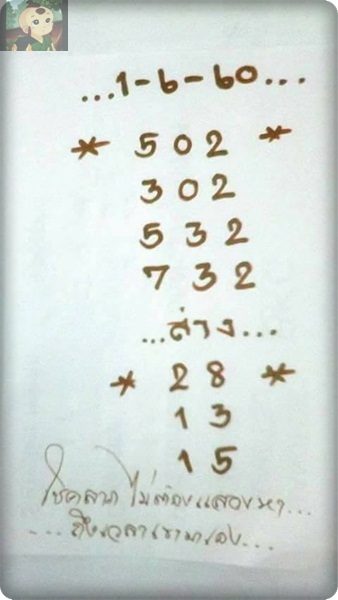 ...1-6-60...
* 502 *
302
532
732
...ล่าง...
* 28 *
13
15
โชคลาภ ไม่ต้องแสวงหา...
...ถึงเวลาเขามาเอง...